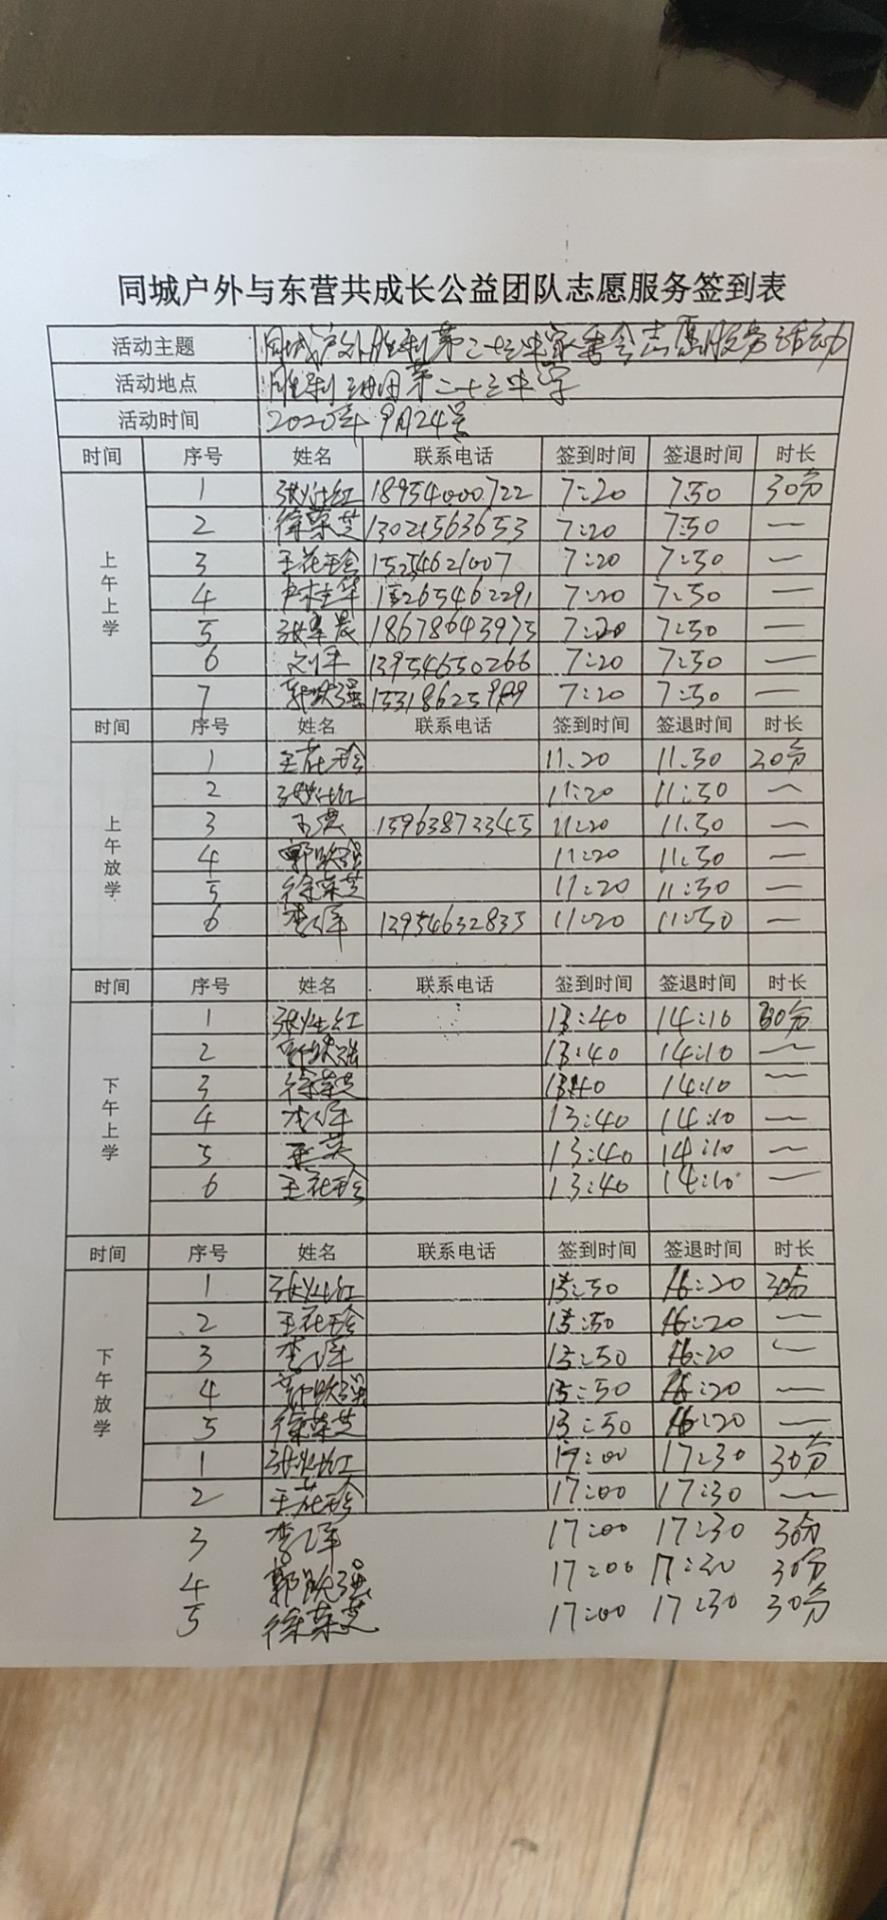 同城户外与东营共成长公益团队志愿服务签到表
活动主题 同城户外胜利第二十三中家委会志愿服务活动
活动地点 胜利油田第二十三中学
活动时间 2020年9月24号
时间 序号 姓名 联系电话 签到时间 签退时间 时长
上午上学
1 张灶红 18954000722 7:20 7:50 30分
2 徐荣芝 13021563653 7:20 7:50 —
3 王花珍 15254621007 7:20 7:50 —
4 卢桂华 15265462291 7:20 7:50 —
5 张军晨 18678643975 7:20 7:50 —
6 刘军 13954650266 7:20 7:50 —
7 郭跃强 7:20 7:50 —
时间 序号 姓名 联系电话 签到时间 签退时间 时长
上午放学
1 王花珍 11:20 11:50 30分
2 张灶红 11:20 11:50 —
3 15963873345 11:20 11:50 —
4 郭跃强 11:20 11:50 —
5 徐荣芝 11:20 11:50 —
6 李军 13954632835 11:20 11:50 —
时间 序号 姓名 联系电话 签到时间 签退时间 时长
下午上学
1 张灶红 13:40 14:10 30分
2 郭跃强 13:40 14:10 —
3 徐荣芝 13:40 14:10 —
4 李军 13:40 14:10 —
5 13:40 14:10 —
6 王花珍 13:40 14:10 —
时间 序号 姓名 联系电话 签到时间 签退时间 时长
下午放学
1 张灶红 15:50 16:20 30分
2 王花珍 15:50 16:20 —
3 李军 15:50 16:20 —
4 郭跃强 15:50 16:20 —
5 徐荣芝 15:50 16:20 —
1 张灶红 17:00 17:30 30分
2 王花珍 17:00 17:30 —
3 李军 17:00 17:30 30分
4 郭跃强 17:00 17:30 30分
5 徐荣芝 17:00 17:30 30分